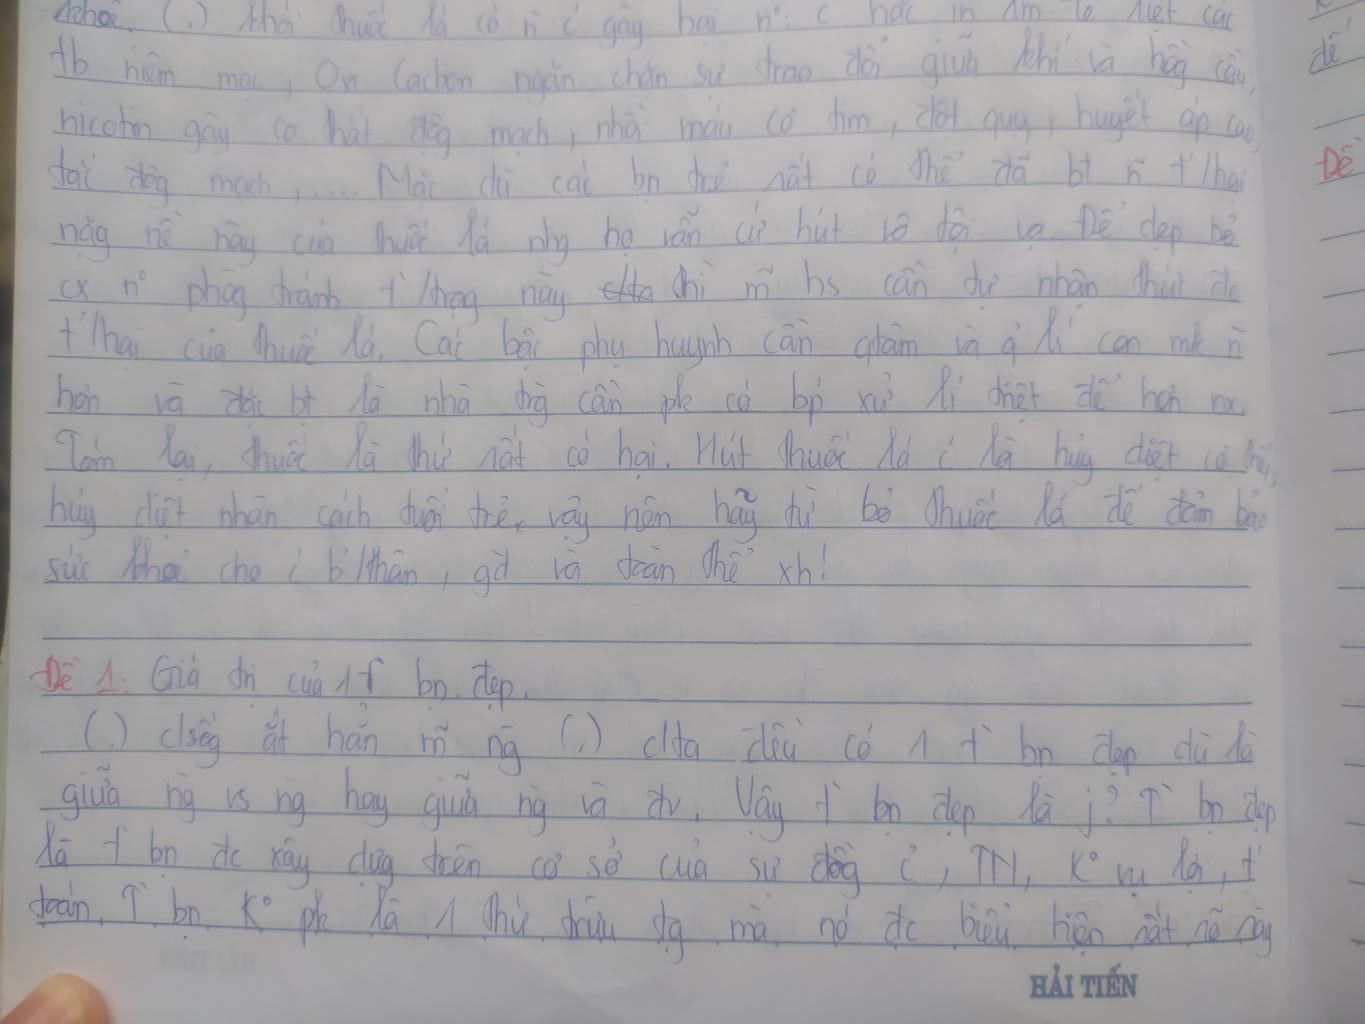 khoẻ. (.) khói thuốc lá có ñ c gây hại nº: c hắc ín làm tê liệt các
tb niêm mạc, Oxi Cacbon ngăn chặn sự trao đổi giữa khí và hồg cầu,
nicotin gây co thắt độg mạch, nhồi máu cơ tim, đột quỵ, huyết áp cao,
tắc độg mạch,..... Mặc dù các bn trẻ rất có thể đã bt ñ t'/hại
nặg nề này của thuốc lá nhg họ vẫn cứ hút vô tội vạ. Để dẹp bỏ
cx nº phòg tránh t`/trạg này thì m̃ hs cần tự nhận thức đc
t'/hại của thuốc lá. Các bậc phụ huynh cần qtâm và q̉ lí con mk ñ
hơn và đặc bt là nhà trg cần pk có bp xử lí triệt để hơn nx.
Tóm lại, thuốc lá thứ rất có hại. Hút thuốc lá c là hủy diệt cơ thể,
hủy diệt nhân cách tuổi trẻ, vậy nên hãy từ bỏ thuốc lá để đảm bảo
sức khoẻ cho c b'/thân, gđ và toàn thể xh!
Đề 1: Giá trị của 1 t` bn đẹp.
(.) c/sốg ắt hẳn m̃ ng (.) c/ta đều có 1 t` bn đẹp dù là
giữa ng vs ng hay giữa ng và đv. Vậy t` bn đẹp là j? T` bn đẹp
là t` bn đc xây dựg trên cơ sở của sự đồg c, TN, Kº vụ lợi, t'
toán. T` bn Kº pk là 1 thứ trừu tg mà nó đc biểu hiện rất rõ ràg
HẢI TIẾN